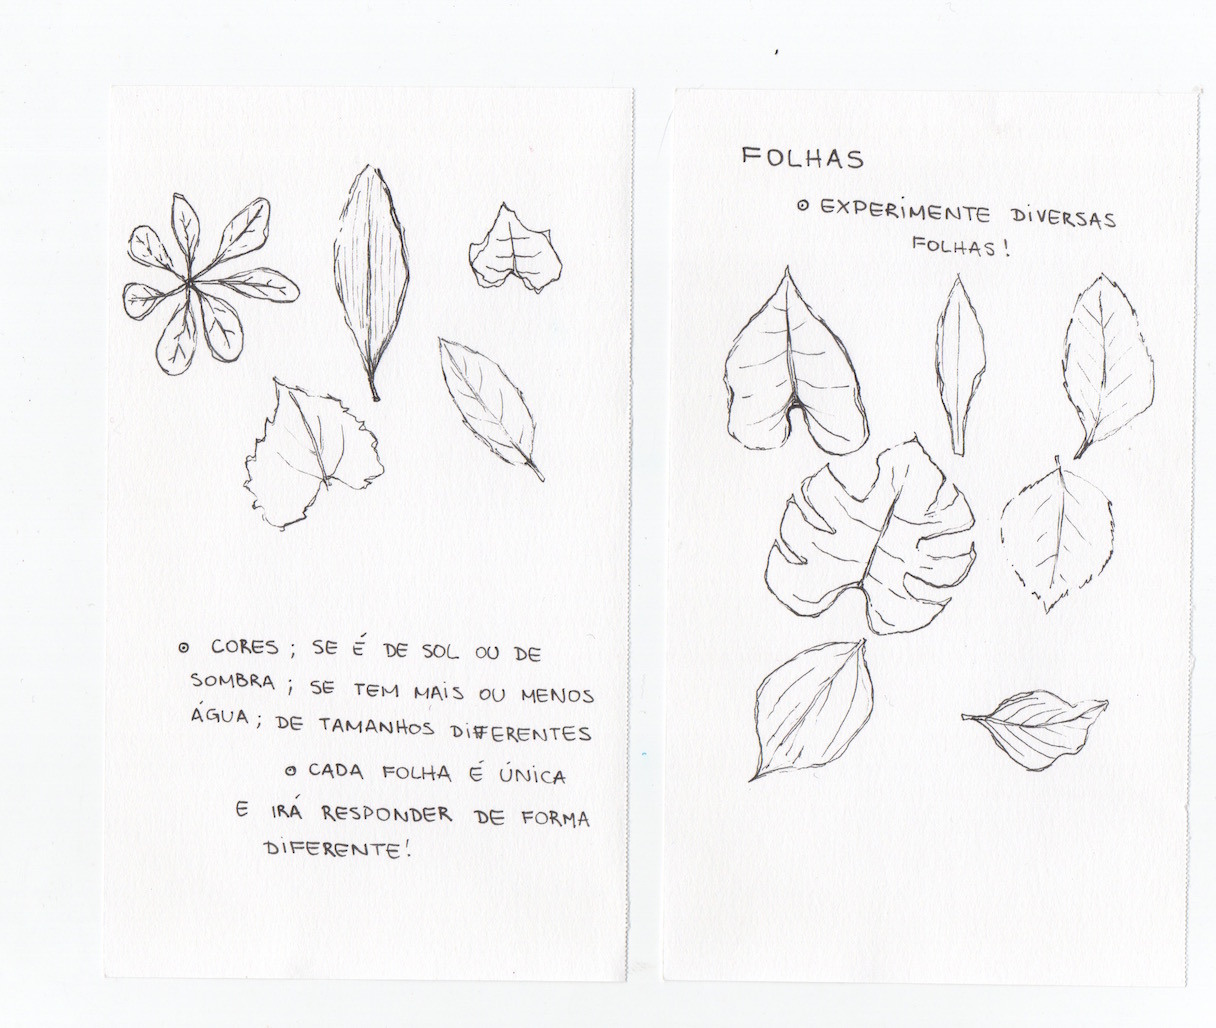 CORES; SE É DE SOL OU DE
SOMBRA; SE TEM MAIS OU MENOS
ÁGUA; DE TAMANHOS DIFERENTES
CADA FOLHA É ÚNICA
E IRÁ RESPONDER DE FORMA
DIFERENTE!
FOLHAS
EXPERIMENTE DIVERSAS
FOLHAS!